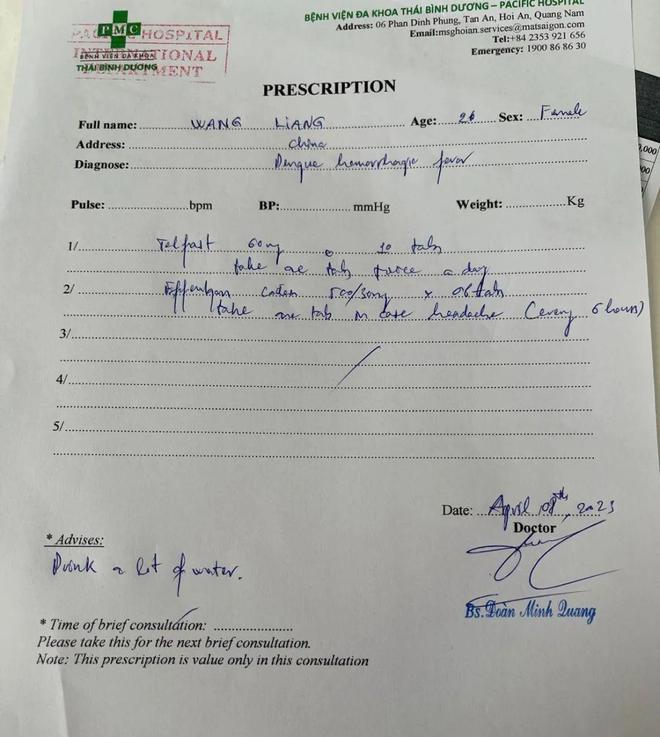 BỆNH VIỆN ĐA KHOA THÁI BÌNH DƯƠNG – PACIFIC HOSPITAL
Address: 06 Phan Dinh Phung, Tan An, Hoi An, Quang Nam
Email:msghoian.services@matsaigon.com
Tel:+84 2353 921 656
Emergency: 1900 86 86 30
PACIFIC HOSPITAL
INTERNATIONAL
DEPARTMENT
PMC
BỆNH VIỆN ĐA KHOA
THÁI BÌNH DƯƠNG
PRESCRIPTION
Full name: WANG LIANG Age: 26 Sex: Female
Address: China
Diagnose: Dengue hemorrhagic fever
Pulse: bpm BP: mmHg Weight: Kg
1/ Telfast 60mg 10 tab
take one tab twice a day
2/ Efferalgan Codein 500/30mg x 06 tab
take one tab in case headache (every 6 hours)
3/
4/
5/
Date: April 08th, 2023
Doctor
* Advises:
Drink a lot of water.
Bs. Đoàn Minh Quang
* Time of brief consultation:
Please take this for the next brief consultation.
Note: This prescription is value only in this consultation